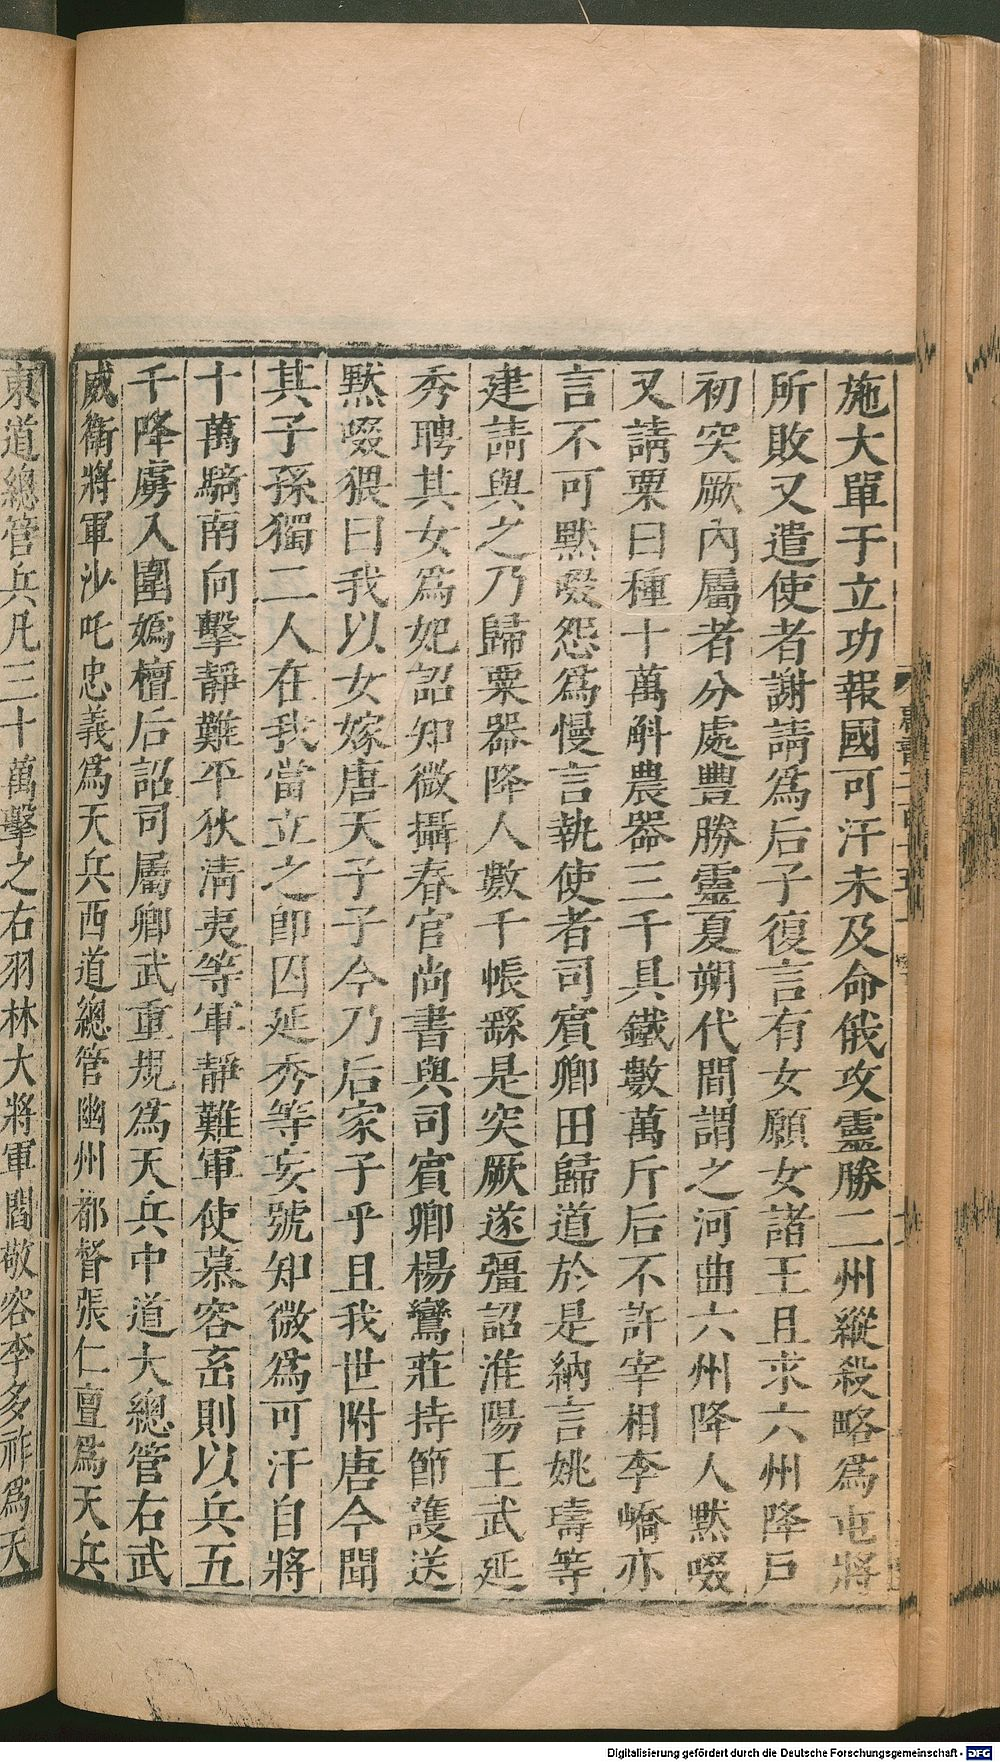 施大單于立功報國可汗未及命俄攻靈勝二州縱殺略為屯將
所敗又遣使者謝請為后子復言有女願女諸王且求六州降戶
初突厥內屬者分處豐勝靈夏朔代間謂之河曲六州降人默啜
又請粟田種十萬斛農器三千具鐵數萬斤后不許宰相李嶠亦
言不可默啜怨為慢言執使者司賓卿田歸道於是納言姚璹等
建請與之乃歸粟器降人數千帳繇是突厥遂彊詔淮陽王武延
秀聘其女為妃詔知微攝春官尚書與司賓卿楊鸞莊持節護送
默啜猥曰我以女嫁唐天子子今乃后家子乎且我世附唐今聞
其子孫獨二人在我當立之即囚延秀等妄號知微為可汗自將
十萬騎南向擊靜難平狄清夷等軍靜難軍使慕容玄則以兵五
千降虜入圍媯檀后詔司屬卿武重規為天兵中道大總管右武
威衛將軍沙吒忠義為天兵西道總管幽州都督張仁亶為天兵
東道總管兵凡三十萬擊之右羽林大將軍閻敬容李多祚為天
Digitalisierung gefördert durch die Deutsche Forschungsgemeinschaft - DFG